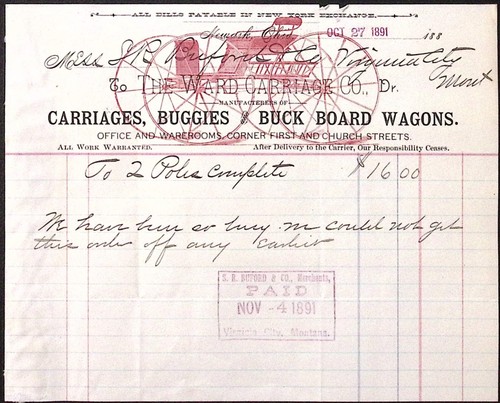 ALL BILLS PAYABLE IN NEW YORK EXCHANGE.
Newark, Ohio, OCT 27 1891 188
Mess S. R. Buford & Co Virginia City
Mont
To THE WARD CARRIAGE CO., Dr.
MANUFACTURERS OF
CARRIAGES, BUGGIES and BUCK BOARD WAGONS.
OFFICE AND WAREROOMS, CORNER FIRST AND CHURCH STREETS.
ALL WORK WARRANTED. After Delivery to the Carrier, Our Responsibility Ceases.
To 2 Poles complete $16 00
We have been so busy we could not get
this order off any earlier
S. R. BUFORD & CO., Merchants,
PAID
NOV -4 1891
Virginia City, Montana.